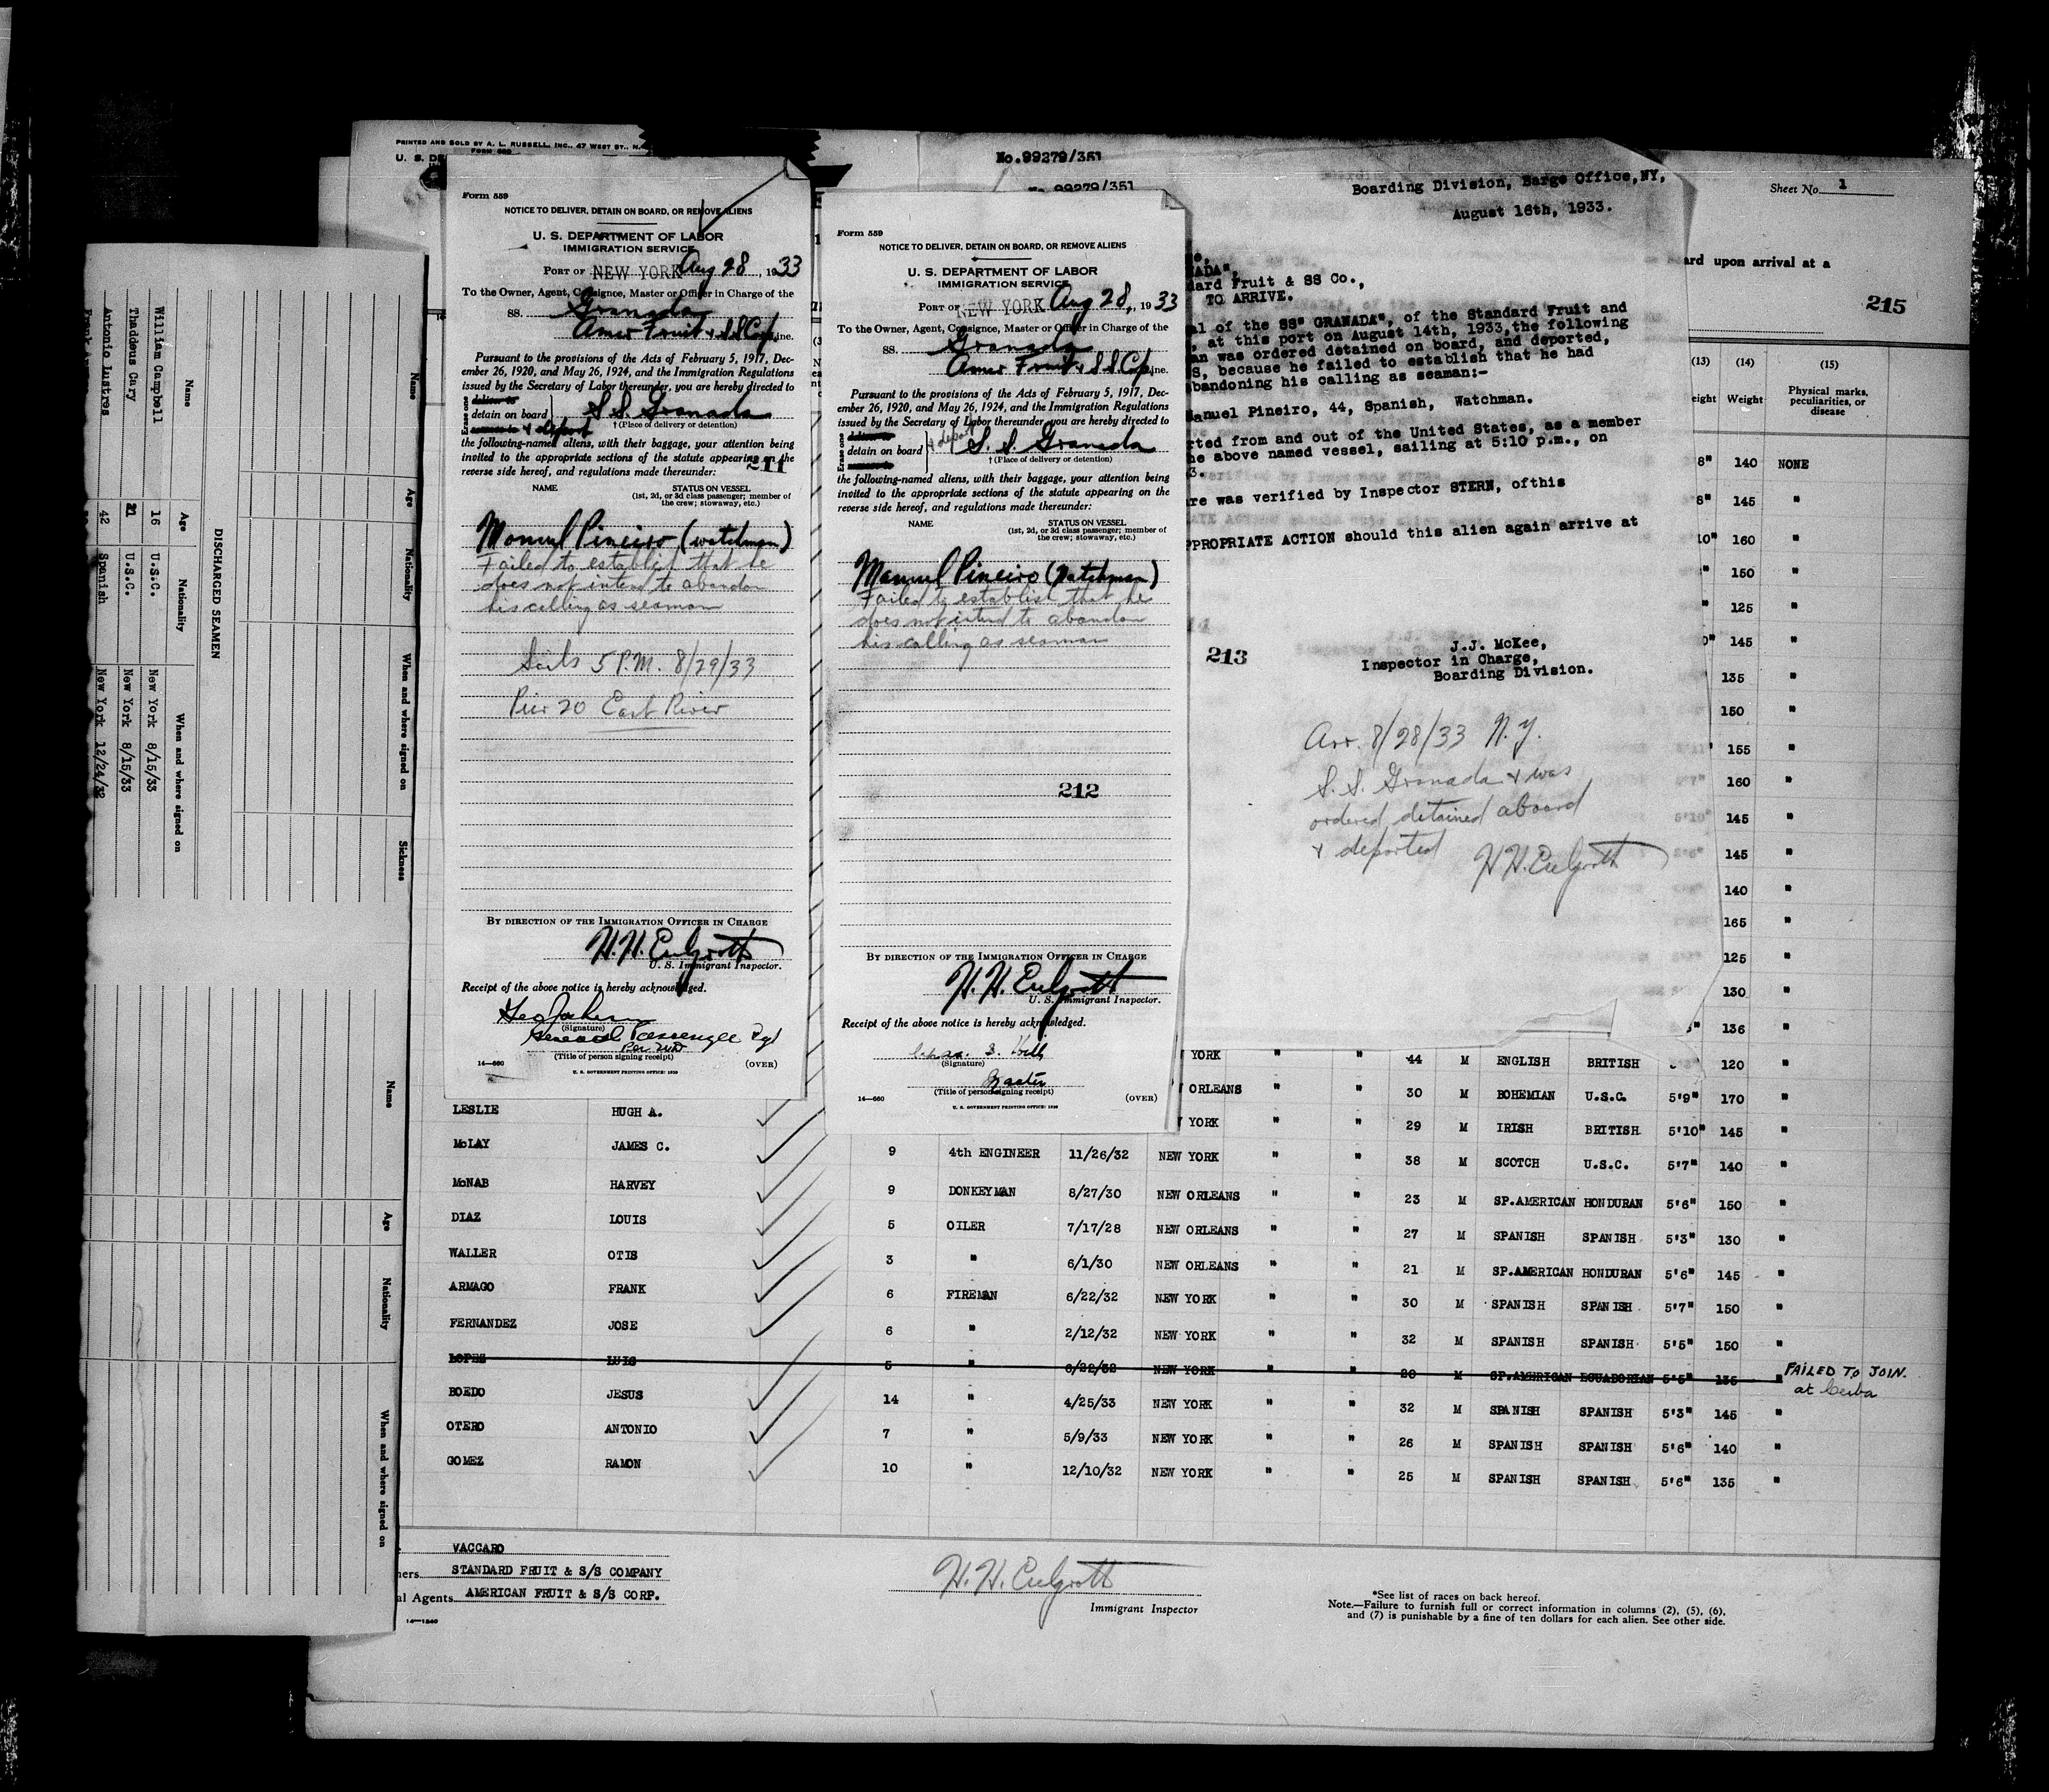 PRINTED AND SOLD BY A. L. RUSSELL, INC., 47 WEST ST., N.
FORM 680
U. S. DE
Form 559
NOTICE TO DELIVER, DETAIN ON BOARD, OR REMOVE ALIENS
U. S. DEPARTMENT OF LABOR
IMMIGRATION SERVICE
PORT OF NEW YORK Aug 28, 1933
To the Owner, Agent, Consignee, Master or Officer in Charge of the
SS. Granada
Amer Fruit & SS Corp. Line.
Pursuant to the provisions of the Acts of February 5, 1917, Dec-
ember 26, 1920, and May 26, 1924, and the Immigration Regulations
issued by the Secretary of Labor thereunder, you are hereby directed to
Erase one
deliver to
detain on board S.S. Granada
remove to & deport †(Place of delivery or detention)
the following-named aliens, with their baggage, your attention being
invited to the appropriate sections of the statute appearing on the
reverse side hereof, and regulations made thereunder:
211
NAME STATUS ON VESSEL
(1st, 2d, or 3d class passenger; member of
the crew; stowaway, etc.)
Manuel Pineiro (watchman)
Failed to establish that he
does not intend to abandon
his calling as seaman
Sails 5 P.M. 8/29/33
Pier 20 East River
BY DIRECTION OF THE IMMIGRATION OFFICER IN CHARGE
U. S. Immigrant Inspector.
Receipt of the above notice is hereby acknowledged.
(Signature)
General Passenger Agt
(Title of person signing receipt)
14—660 (OVER)
U. S. GOVERNMENT PRINTING OFFICE: 1930
Form 559
NOTICE TO DELIVER, DETAIN ON BOARD, OR REMOVE ALIENS
U. S. DEPARTMENT OF LABOR
IMMIGRATION SERVICE
PORT OF NEW YORK Aug 28, 1933
To the Owner, Agent, Consignee, Master or Officer in Charge of the
SS. Granada
Amer Fruit & SS Corp. Line.
Pursuant to the provisions of the Acts of February 5, 1917, Dec-
ember 26, 1920, and May 26, 1924, and the Immigration Regulations
issued by the Secretary of Labor thereunder, you are hereby directed to
Erase one
deliver to
detain on board & deport S.S. Granada
†(Place of delivery or detention)
the following-named aliens, with their baggage, your attention being
invited to the appropriate sections of the statute appearing on the
reverse side hereof, and regulations made thereunder:
NAME STATUS ON VESSEL
(1st, 2d, or 3d class passenger; member of
the crew; stowaway, etc.)
Manuel Pineiro (watchman)
Failed to establish that he
does not intend to abandon
his calling as seaman
212
BY DIRECTION OF THE IMMIGRATION OFFICER IN CHARGE
U. S. Immigrant Inspector.
Receipt of the above notice is hereby acknowledged.
(Signature)
Master
(Title of person signing receipt)
14—660 (OVER)
U. S. GOVERNMENT PRINTING OFFICE: 1930
No.99279/351
No.99279/351
Boarding Division, Barge Office,NY,
August 16th, 1933.
ADA",
dard Fruit & SS Co.,
TO ARRIVE.
al of the SS" GRANADA", of the Standard Fruit and
, at this port on August 14th, 1933,the following
an was ordered detained on board, and deported,
S, because he failed to establish that he had
bandoning his calling as seaman:-
Manuel Pineiro, 44, Spanish, Watchman.
rted from and out of the United States, as a member
he above named vessel, sailing at 5:10 p.m., on
3.
re was verified by Inspector STERN, ofthis
PPROPRIATE ACTION should this alien again arrive at
213
J.J. McKee,
Inspector in Charge,
Boarding Division.
Arr. 8/28/33 N.Y.
S.S. Granada & was
ordered detained aboard
& deported
Sheet No. 1
ard upon arrival at a
215
(13) (14) (15)
eight Weight Physical marks, peculiarities, or disease
8" 140 NONE
8" 145 "
10" 160 "
" 150 "
" 125 "
0" 145 "
135 "
150 "
" 155 "
160 "
145 "
145 "
140 "
165 "
125 "
130 "
136 "
YORK " " 44 M ENGLISH BRITISH 120 "
ORLEANS " " 30 M BOHEMIAN U.S.C. 5'9" 170 "
LESLIE HUGH A. YORK " " 29 M IRISH BRITISH 5'10" 145 "
McLAY JAMES C. 9 4th ENGINEER 11/26/32 NEW YORK " " 38 M SCOTCH U.S.C. 5'7" 140 "
McNAB HARVEY 9 DONKEYMAN 8/27/30 NEW ORLEANS " " 23 M SP.AMERICAN HONDURAN 5'6" 150 "
DIAZ LOUIS 5 OILER 7/17/28 NEW ORLEANS " " 27 M SPANISH SPANISH 5'3" 130 "
WALLER OTIS 3 " 6/1/30 NEW ORLEANS " " 21 M SP.AMERICAN HONDURAN 5'6" 145 "
ARMAGO FRANK 6 FIREMAN 6/22/32 NEW YORK " " 30 M SPANISH SPANISH 5'7" 150 "
FERNANDEZ JOSE 6 " 2/12/32 NEW YORK " " 32 M SPANISH SPANISH 5'5" 150 "
LOPEZ LUIS 5 " 6/22/32 NEW YORK " " 20 M SP.AMERICAN ECUADORIAN 5'5" 135 " FAILED TO JOIN.
at Ceiba
BOEDO JESUS 14 " 4/25/33 NEW YORK " " 32 M SPANISH SPANISH 5'3" 145 "
OTERO ANTONIO 7 " 5/9/33 NEW YORK " " 26 M SPANISH SPANISH 5'6" 140 "
GOMEZ RAMON 10 " 12/10/32 NEW YORK " " 25 M SPANISH SPANISH 5'6" 135 "
VACCARO
ners STANDARD FRUIT & S/S COMPANY
al Agents AMERICAN FRUIT & S/S CORP.
14—1240
Immigrant Inspector
*See list of races on back hereof.
Note.—Failure to furnish full or correct information in columns (2), (5), (6),
and (7) is punishable by a fine of ten dollars for each alien. See other side.
DISCHARGED SEAMEN
Name Age Nationality When and where signed on
William Campbell 16 U.S.C. New York 8/15/33
Thaddeus Cary 21 U.S.C. New York 8/15/33
Antonio Lustres 42 Spanish New York 12/24/32
Name Age Nationality When and where signed on Sickness
Name Age Nationality When and where signed on